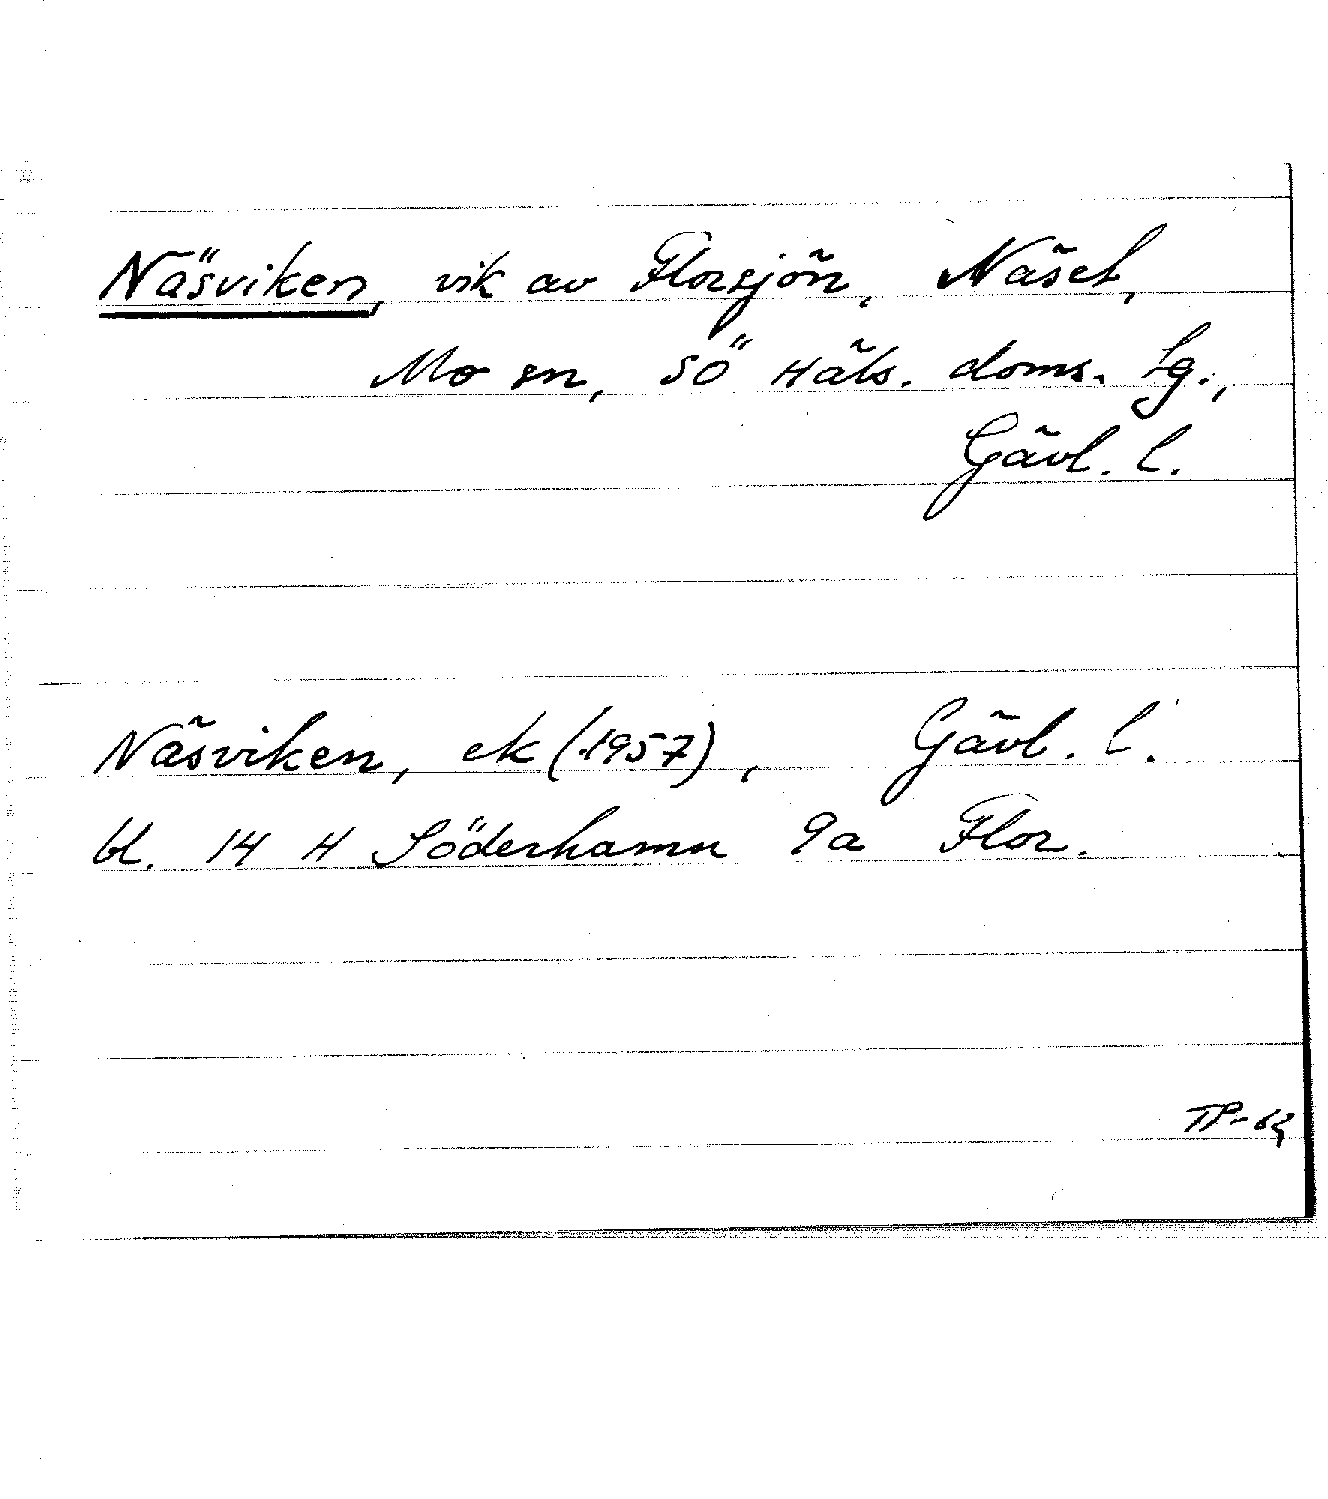 Näsviken, vik av Florsjön, Näset,
Mo sn, SÖ Häls. doms. lg.,
Gävl. l.
Näsviken, ek (1957), Gävl. l.
bl. 14 H Söderhamn 9a Flor.
TP-62